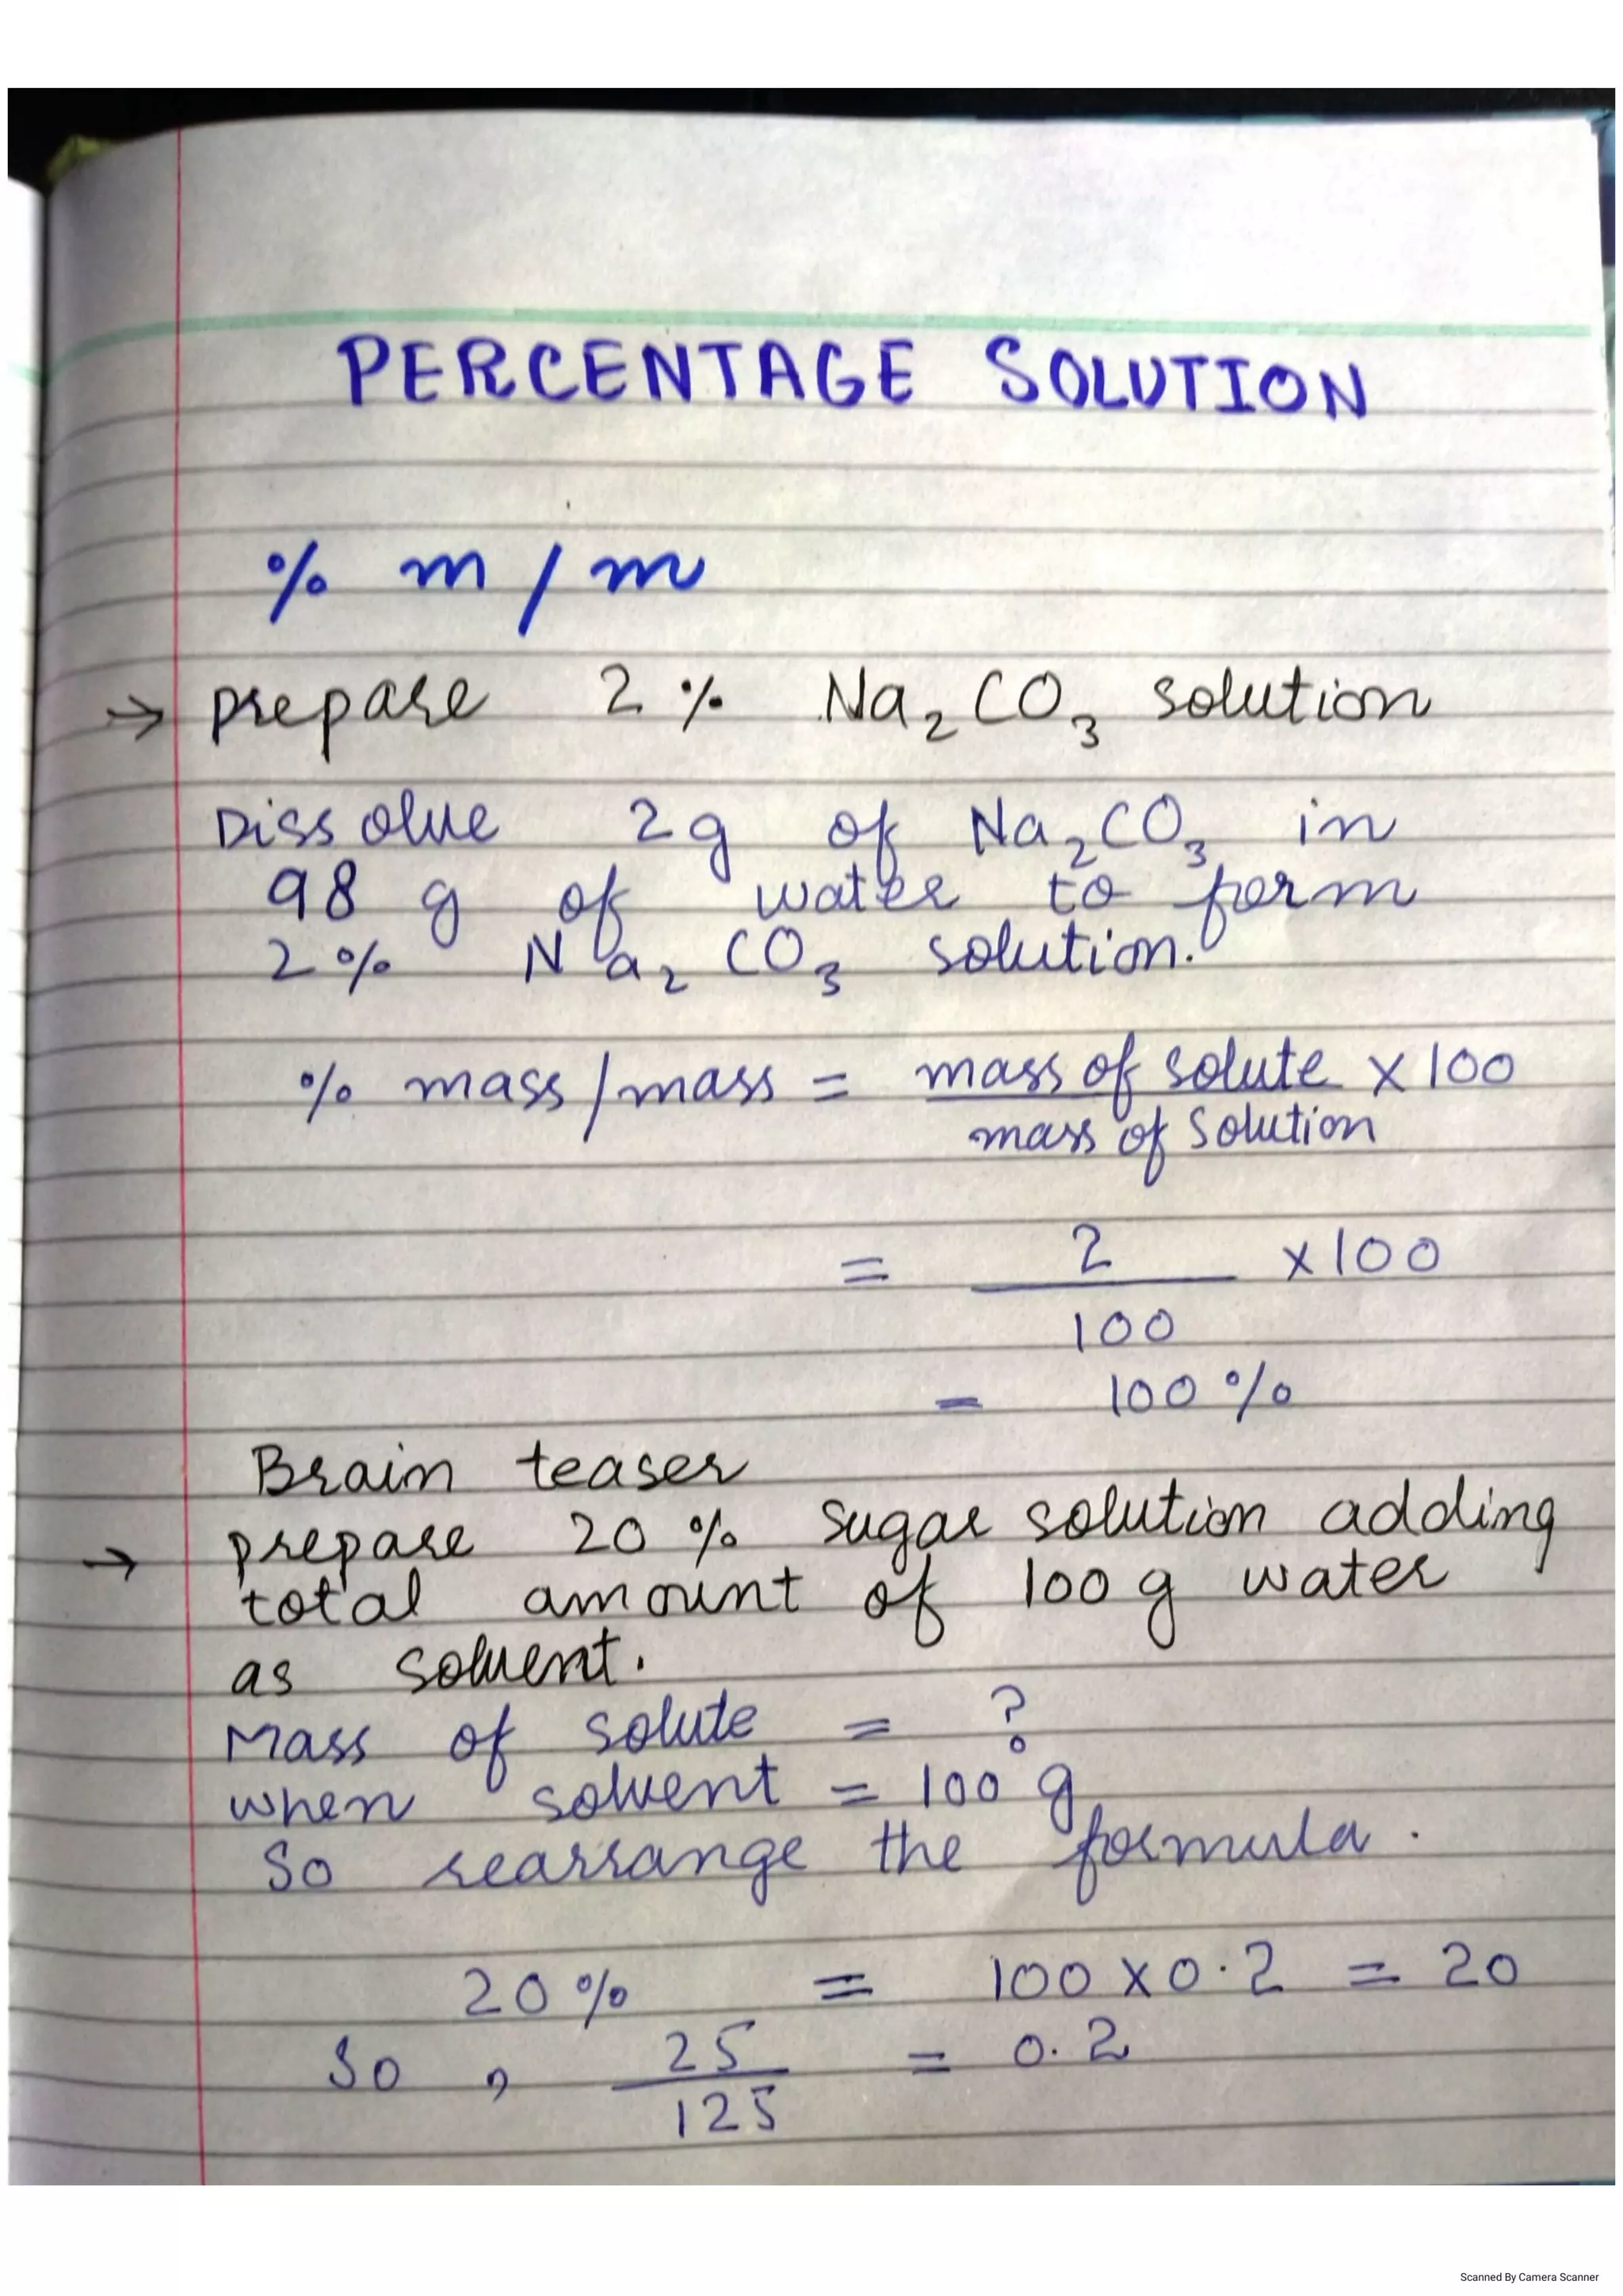 PERCENTAGE SOLUTION
% m/m
→ prepare 2% Na₂CO₃ solution
Dissolve 2g of Na₂CO₃ in
98 g of water to form
2% Na₂CO₃ solution.
% mass/mass = mass of solute x 100
mass of solution
= 2 x 100
100
= 100%
Brain teaser
→ prepare 20% sugar solution adding
total amount of 100g water
as solvent.
Mass of solute = ?
when solvent = 100 g
So rearrange the formula.
20% = 100 x 0.2 = 20
So , 25 = 0.2
125
Scanned By Camera Scanner